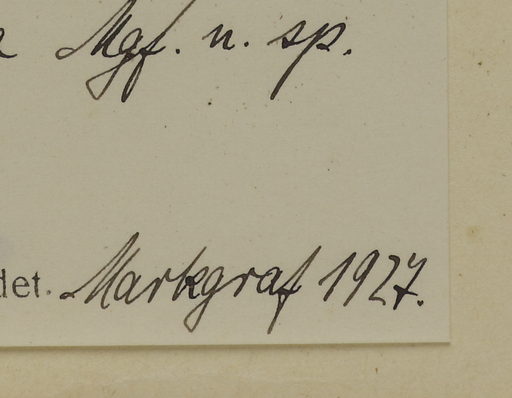 Mgf. n. sp.
det. Markgraf 1927.